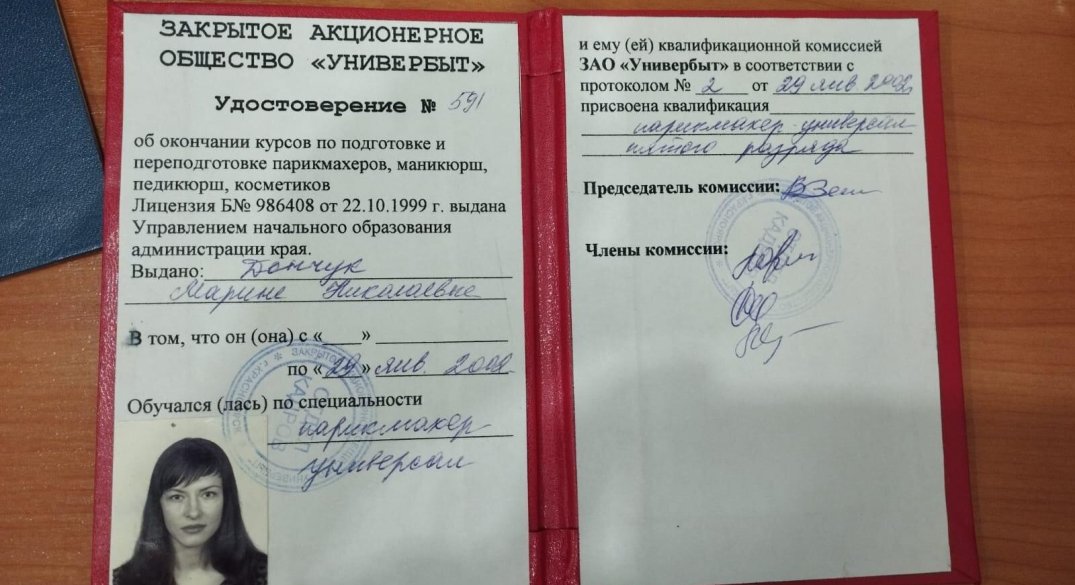 ЗАКРЫТОЕ АКЦИОНЕРНОЕ
ОБЩЕСТВО «УНИВЕРБЫТ»
Удостоверение № 591
об окончании курсов по подготовке и
переподготовке парикмахеров, маникюрш,
педикюрш, косметиков
Лицензия Б№ 986408 от 22.10.1999 г. выдана
Управлением начального образования
администрации края.
Выдано: Дончук
Марине Николаевне
В том, что он (она) с « »
по «29» янв. 2002
Обучался (лась) по специальности
парикмахер
универсал
ЗАКРЫТОЕ
ОТДЕЛ
КАДРОВ
и ему (ей) квалификационной комиссией
ЗАО «Универбыт» в соответствии с
протоколом № 2 от 29 янв 2002
присвоена квалификация
парикмахер-универсал
пятого разряда
Председатель комиссии:
Члены комиссии: